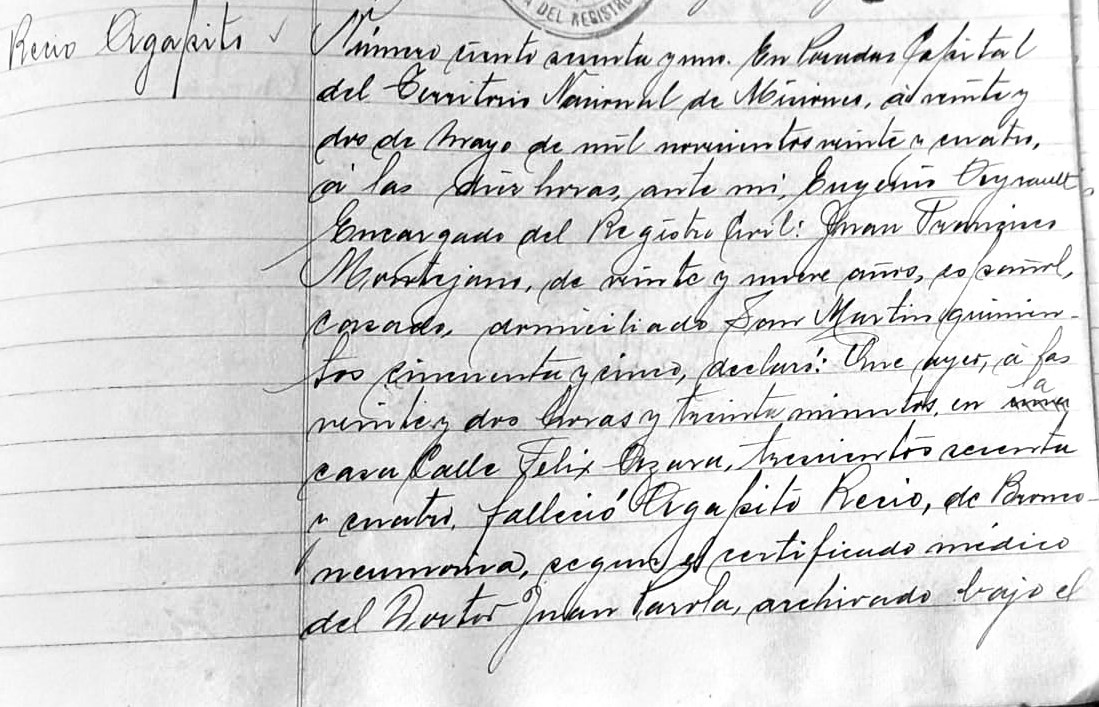 DEL REGISTRO
Recio Agapito ✓
Número ciento sesenta y uno. En Posadas Capital
del Territorio Nacional de Misiones, à veinte y
dos de Mayo de mil novecientos veinte y cuatro,
á las diez horas, ante mi, Eugenio
Encargado del Registro Civil: Juan Francisco
Montejano, de veinte y nueve años, español,
casado, domiciliado San Martin quinien-
tos cincuenta y cinco, declaró: Que ayer, à las
veinte y dos horas y treinta minutos, en la
casa Calle Felix Azara, trescientos sesenta
y cuatro, falleció Agapito Recio, de Bronco-
neumonia, segun el certificado médico
del Doctor Juan Parola, archivado bajo el